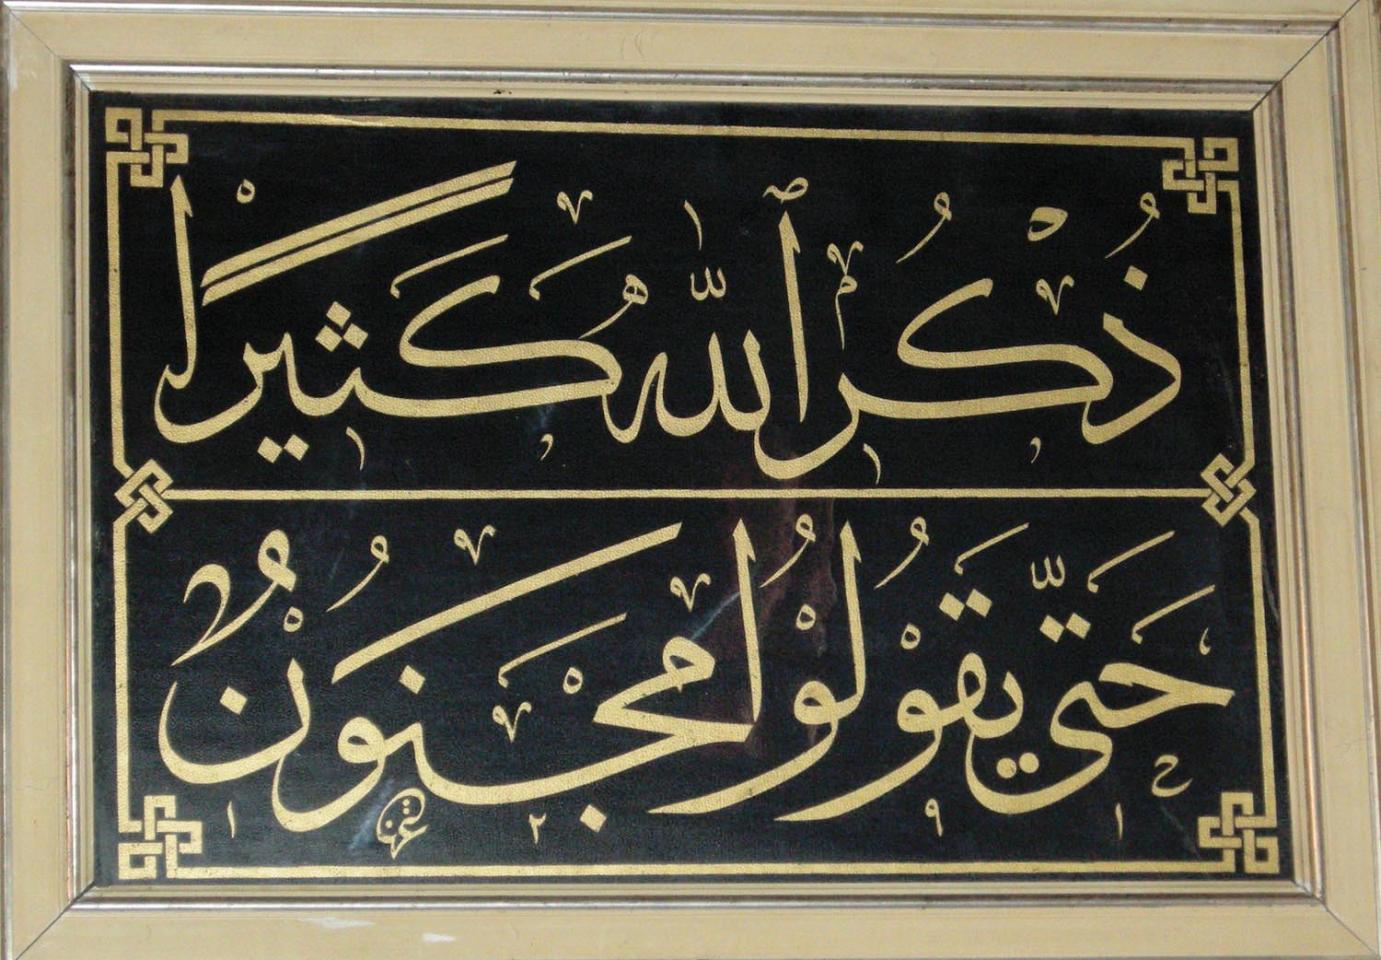 ذُكْرُ ٱللّٰهُ كَثِيرًا
حَتَّى يَقُوْلُوْا مَجْنَوُنْ
١٢٩١